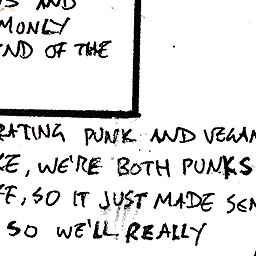 AND
MONLY
END OF THE
RATING PUNK AND VEGAN
KE, WE'RE BOTH PUNKS
FE, SO IT JUST MADE SEN
SO WE'LL REALLY